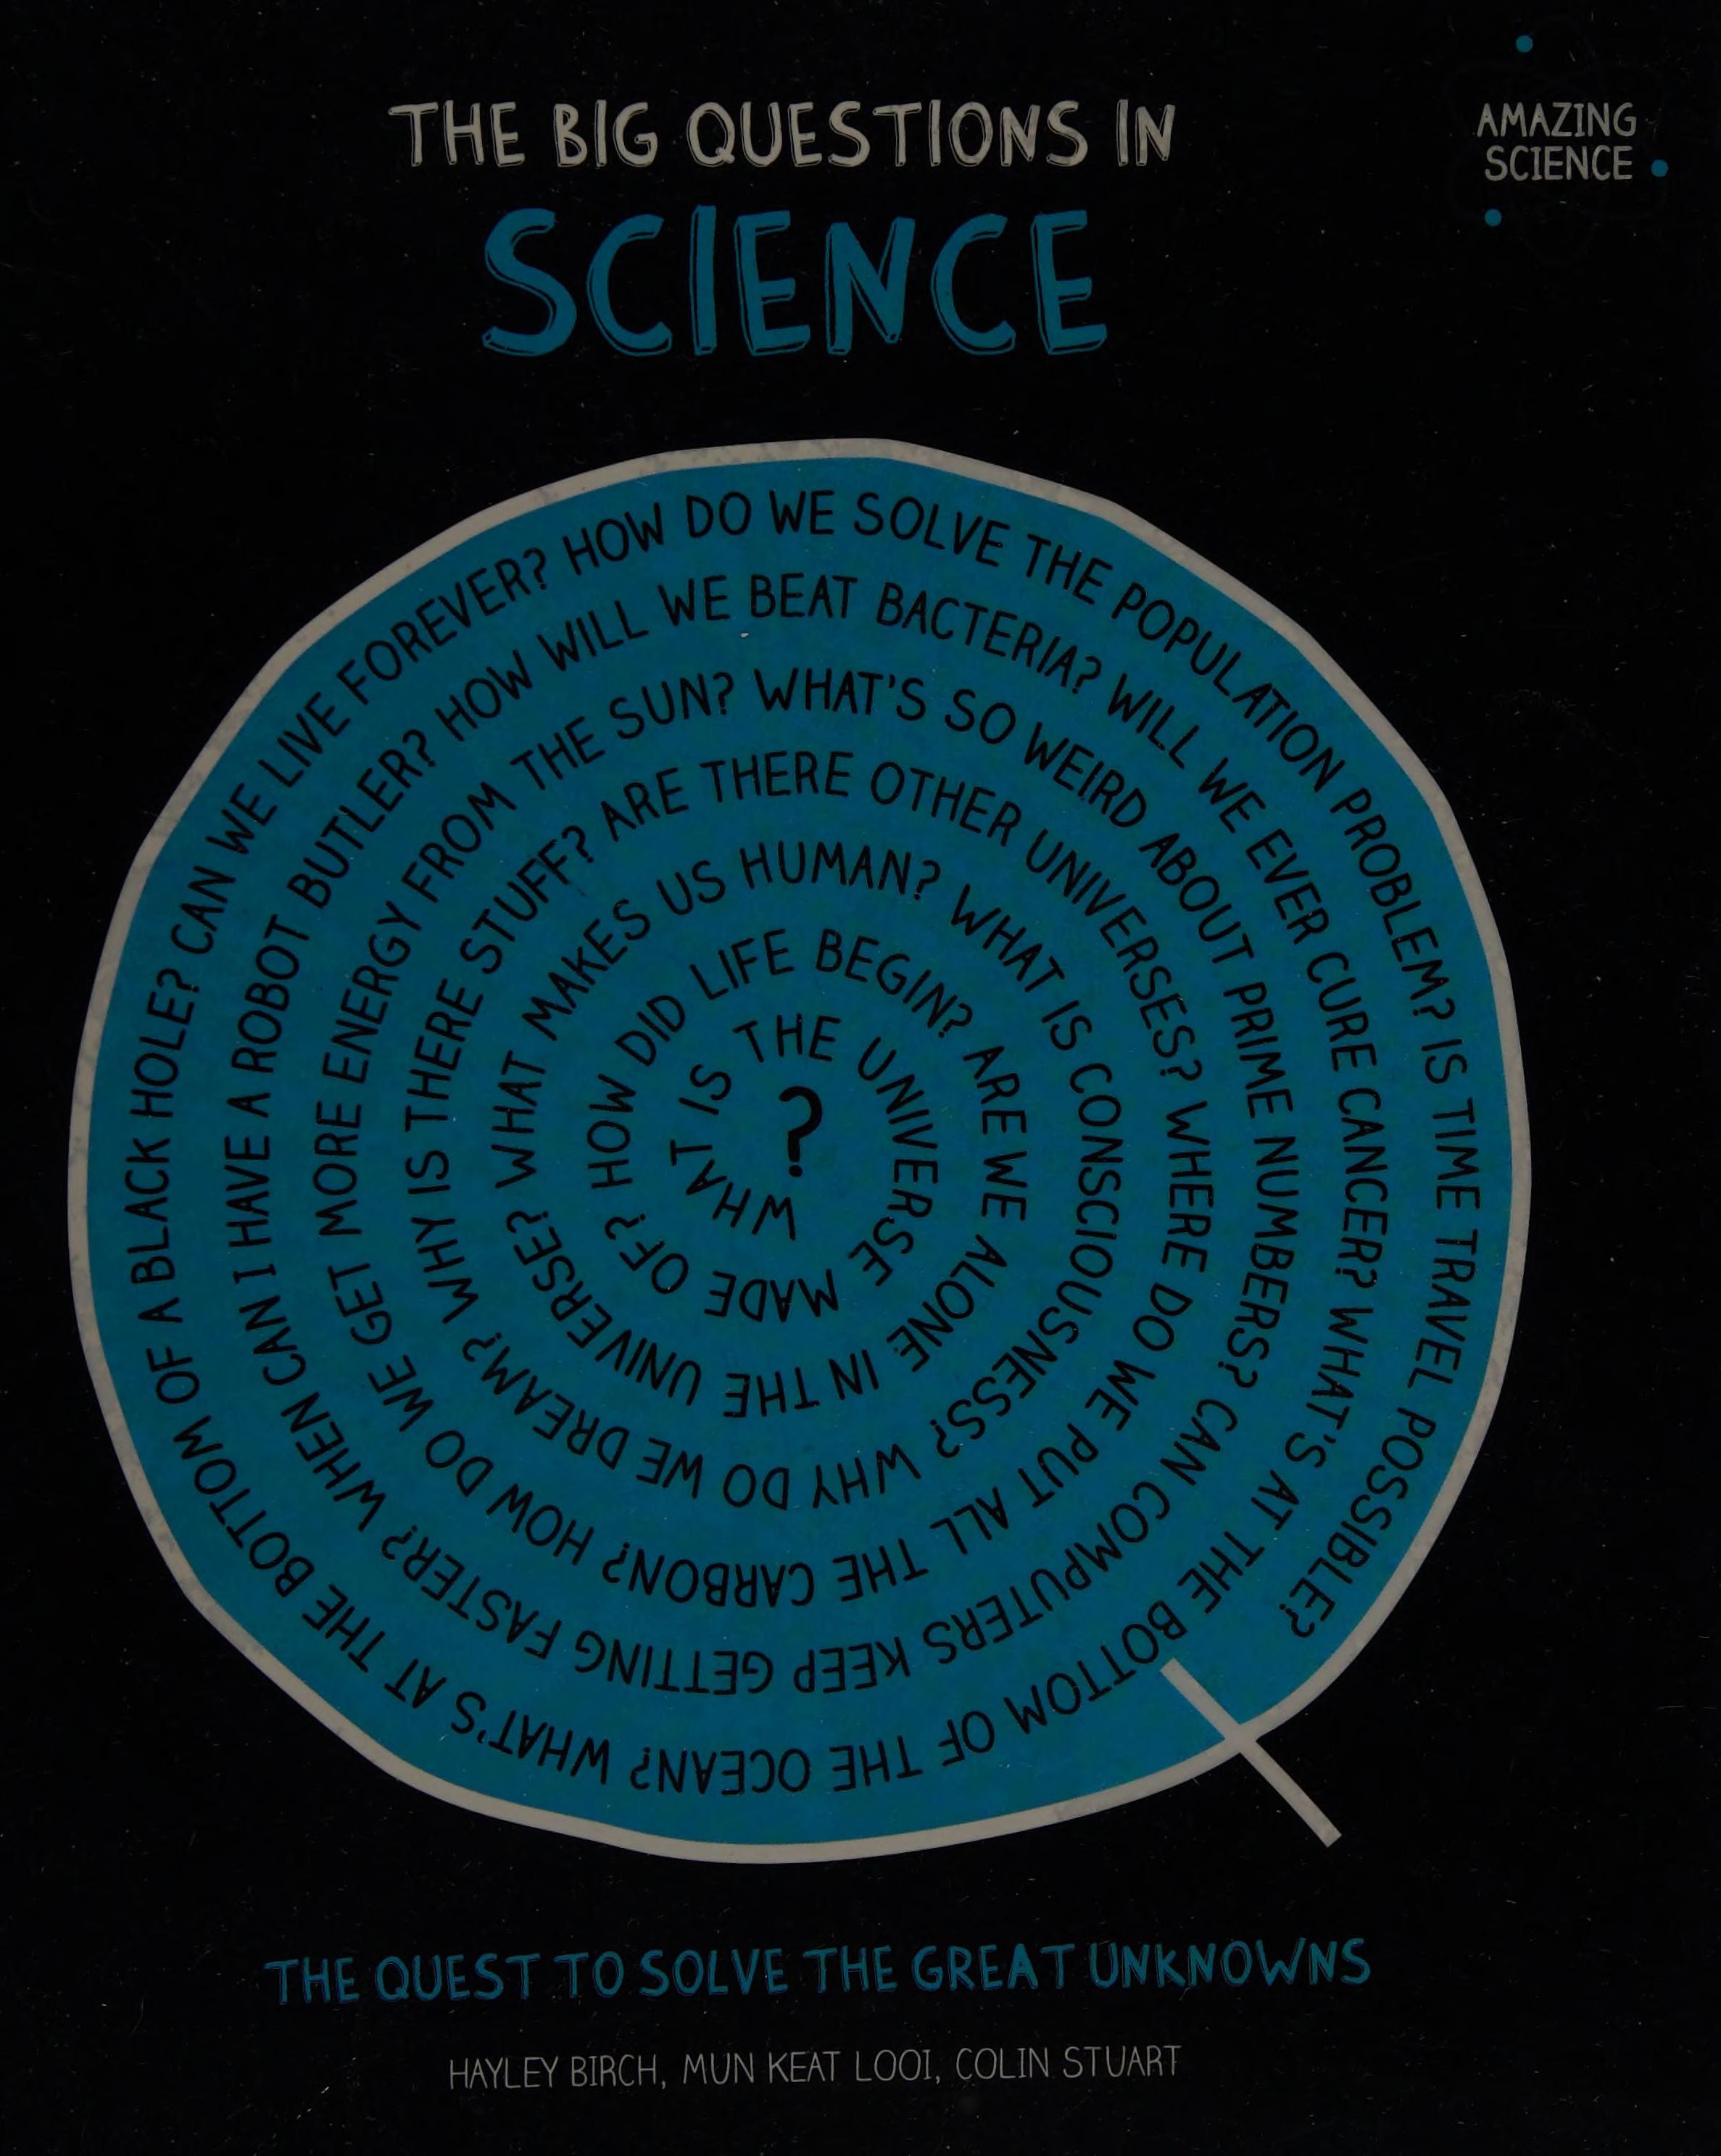 THE BIG QUESTIONS IN
SCIENCE
AMAZING
SCIENCE
WHAT IS THE UNIVERSE MADE OF? HOW DID LIFE BEGIN? ARE WE ALONE IN THE UNIVERSE? WHAT MAKES US HUMAN? WHAT IS CONSCIOUSNESS? WHY DO WE DREAM? WHY IS THERE STUFF? ARE THERE OTHER UNIVERSES? WHERE DO WE PUT ALL THE CARBON? HOW DO WE GET MORE ENERGY FROM THE SUN? WHAT'S SO WEIRD ABOUT PRIME NUMBERS? CAN COMPUTERS KEEP GETTING FASTER? WHEN CAN I HAVE A ROBOT BUTLER? HOW WILL WE BEAT BACTERIA? WILL WE EVER CURE CANCER? WHAT'S AT THE BOTTOM OF THE OCEAN? WHAT'S AT THE BOTTOM OF A BLACK HOLE? CAN WE LIVE FOREVER? HOW DO WE SOLVE THE POPULATION PROBLEM? IS TIME TRAVEL POSSIBLE?
?
THE QUEST TO SOLVE THE GREAT UNKNOWNS
HAYLEY BIRCH, MUN KEAT LOOI, COLIN STUART